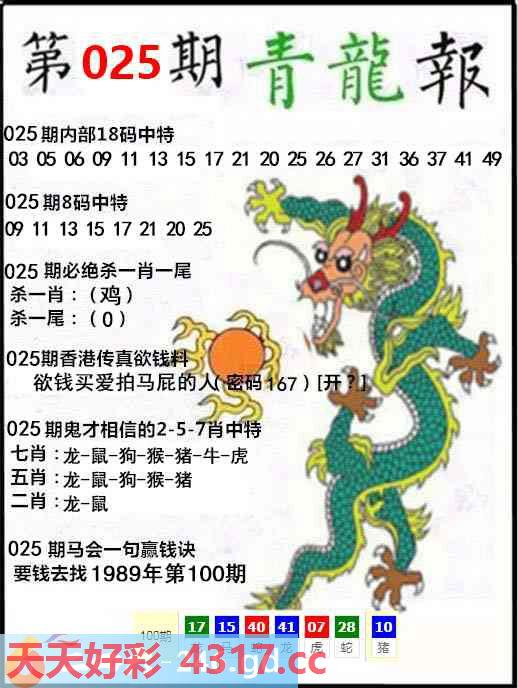 第025期 青龍報
025期内部18码中特
03 05 06 09 11 13 15 17 21 20 25 26 27 31 36 37 41 49
025期8码中特
09 11 13 15 17 21 20 25
025 期必绝杀一肖一尾
杀一肖：（鸡）
杀一尾：（0）
025期香港传真欲钱料
欲钱买爱拍马屁的人（密码167）[开？]
025期鬼才相信的2-5-7肖中特
七肖：龙-鼠-狗-猴-猪-牛-虎
五肖：龙-鼠-狗-猴-猪
二肖：龙-鼠
025 期马会一句赢钱诀
要钱去找1989年第100期
100期 17 15 40 41 07 28 10
马 龙 虎 蛇 猪
天天好彩 4317.cc